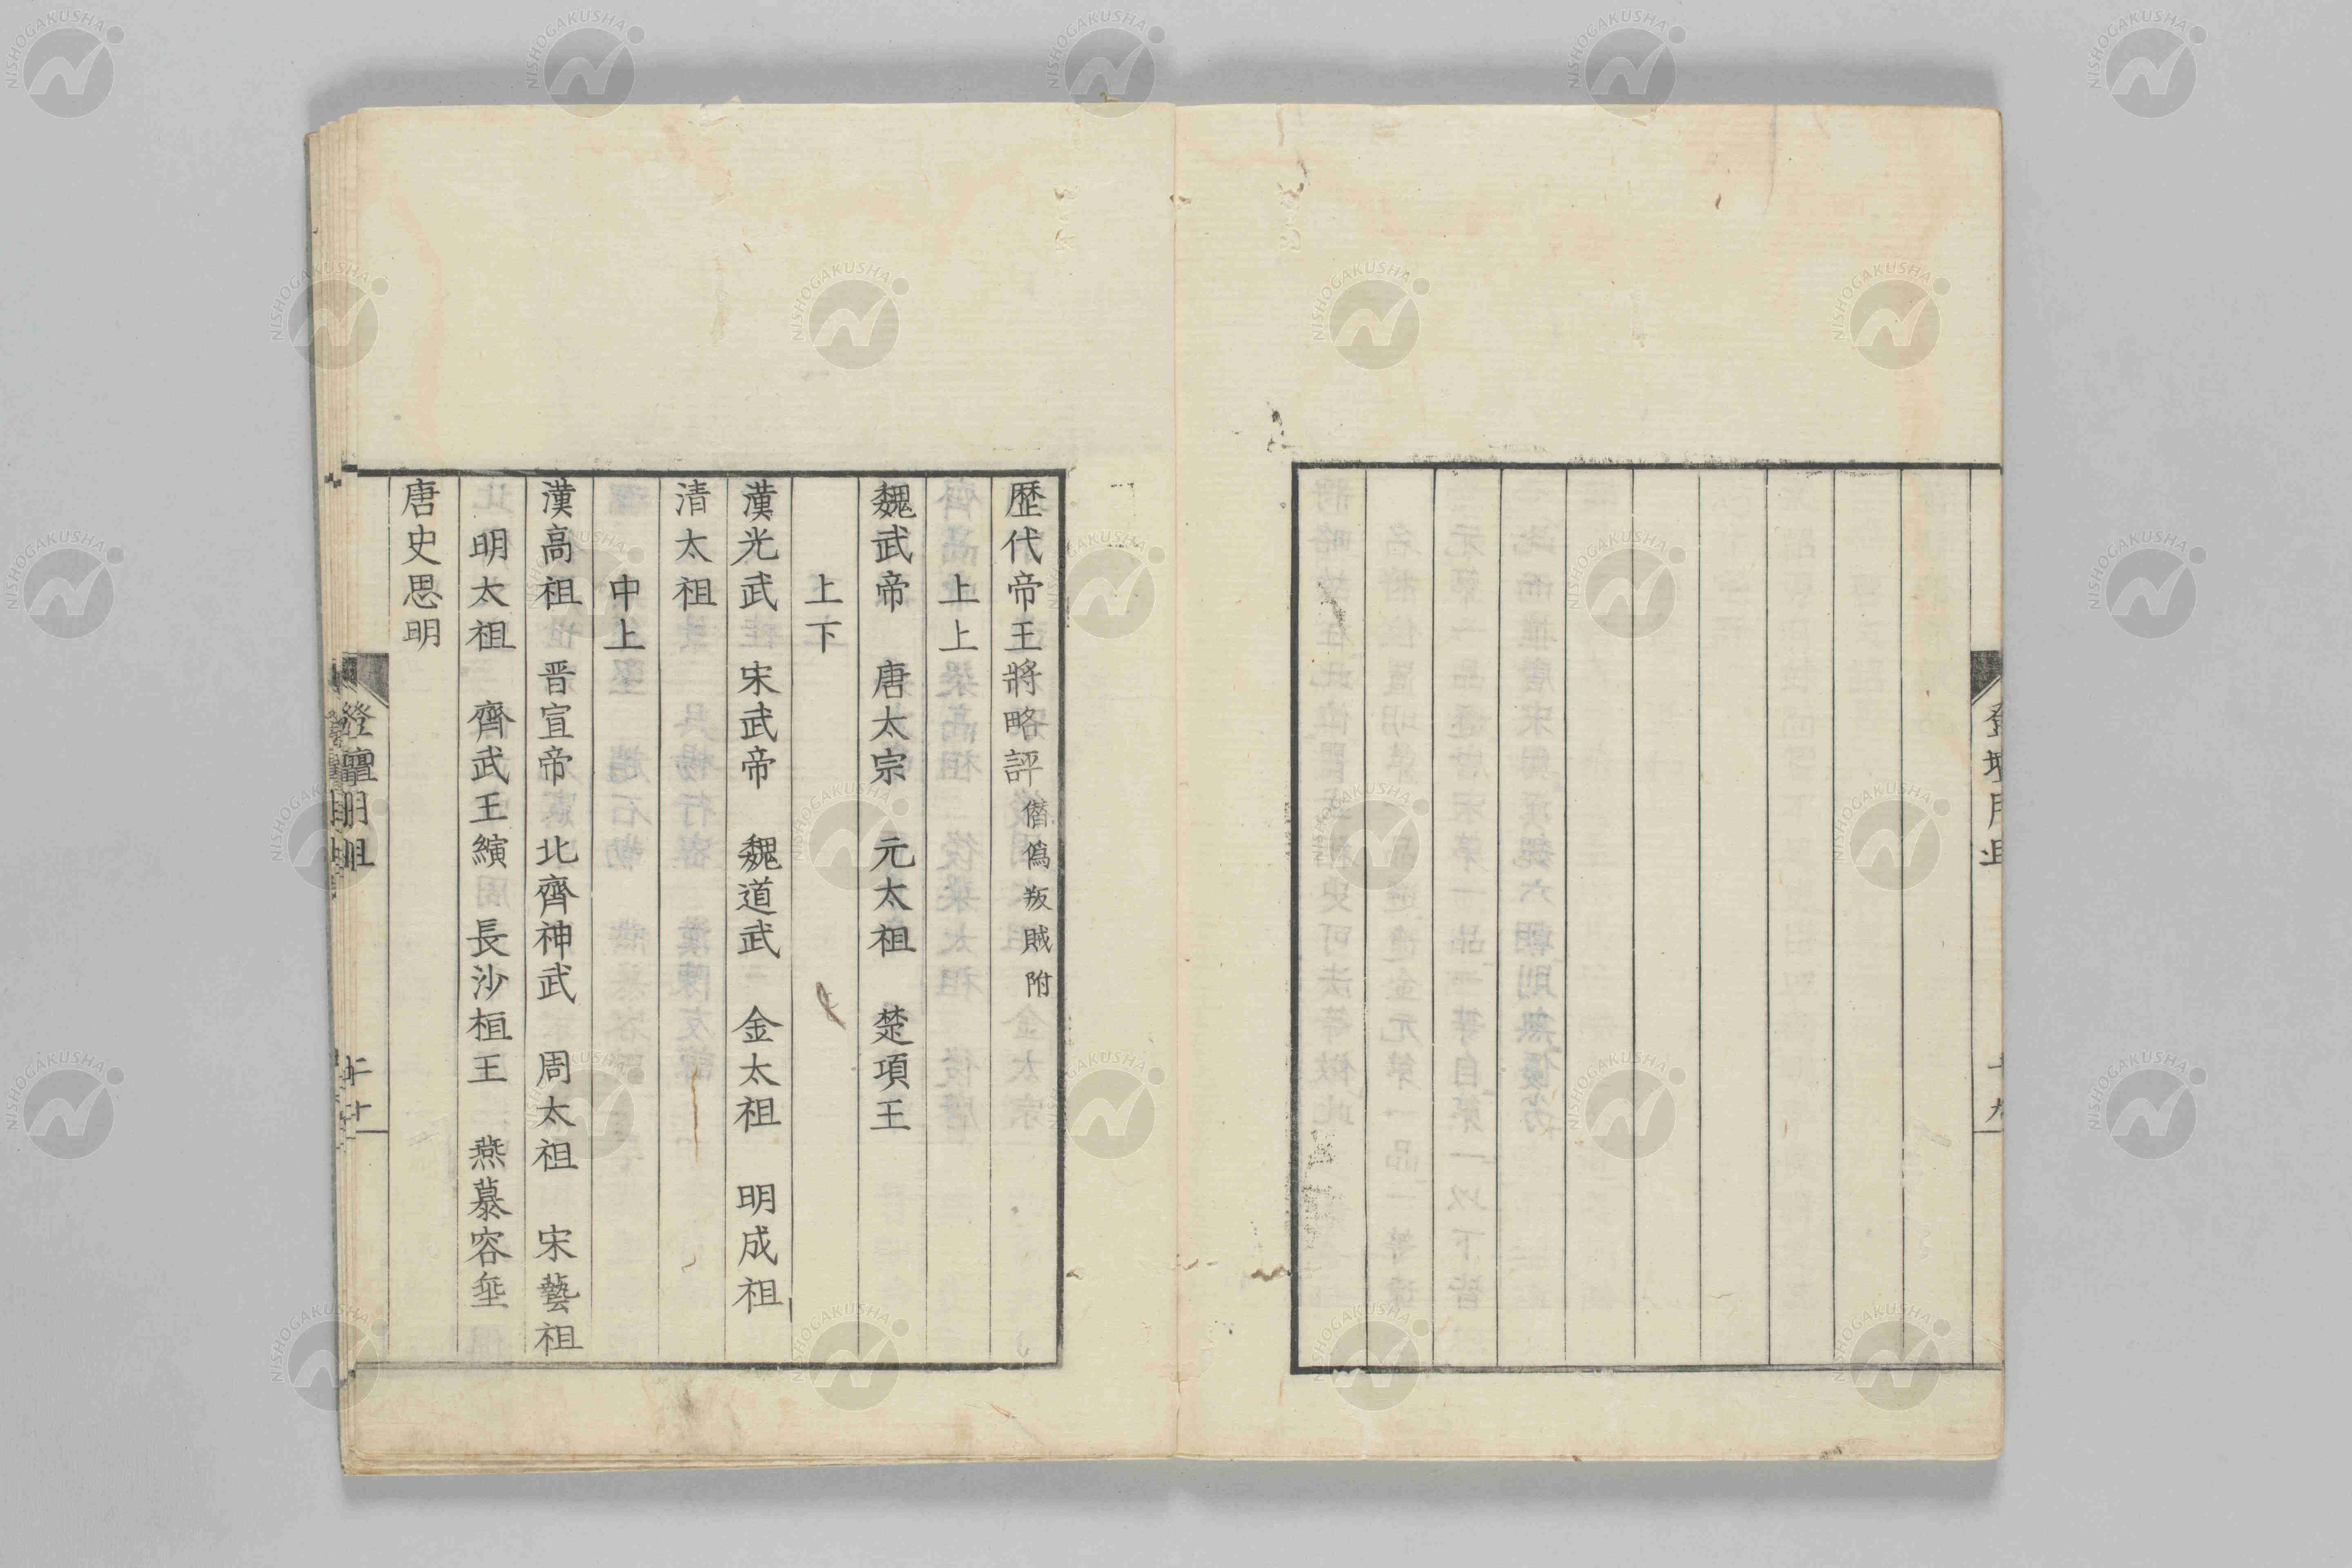 歴代帝王將略評 僭偽叛賊附
上上
魏武帝　唐太宗　元太祖　楚項王
上下
漢光武　宋武帝　魏道武　金太祖　明成祖
清太祖
中上
漢高祖　晋宣帝　北齊神武　周太祖　宋藝祖
明太祖　齊武王縯　長沙桓王　燕慕容垂
唐史思明